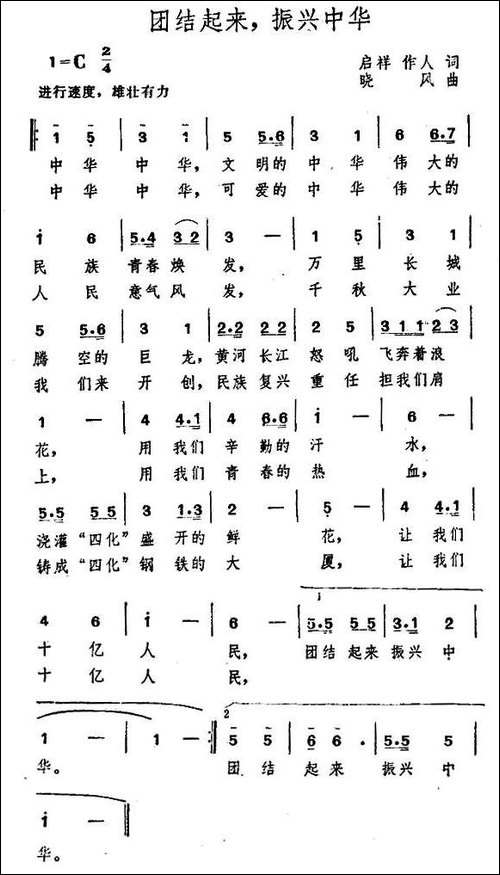 团结起来，振兴中华
1=C 2/4
启祥 作人 词
晓 风 曲
进行速度，雄壮有力
1 5 | 3 1 | 5 5.6 | 3 1 | 6 6.7 |
中 华 中 华，文 明的 中 华 伟 大的
中 华 中 华，可 爱的 中 华 伟 大的
i 6 | 5.4 3 2 | 3 — | 1 5 | 3 1 |
民 族 青春 焕 发， 万 里 长 城
人 民 意气 风 发， 千 秋 大 业
5 5.6 | 3 1 | 2.2 2 2 | 5 5 | 3 1 1 2 3 |
腾 空的 巨 龙，黄河 长江 怒 吼 飞奔着浪
我 们来 开 创，民族 复兴 重 任 担我们肩
1 — | 4 4.1 | 4 6.6 | i — | 6 — |
花， 用 我们 辛 勤的 汗 水，
上， 用 我们 青 春的 热 血，
5.5 5 5 | 3 1.3 | 2 — | 5 — | 4 4.1 |
浇灌“四化”盛 开的 鲜 花， 让 我们
铸成“四化”钢 铁的 大 厦， 让 我们
1
4 6 | i — | 6 — | 5.5 5 5 | 3.1 2 |
十 亿 人 民， 团结 起来 振兴 中
十 亿 人 民，
2
1 — | 1 — :| 5 5 | 6 6 . | 5.5 5 |
华。 团 结 起 来 振兴 中
i — ‖
华。